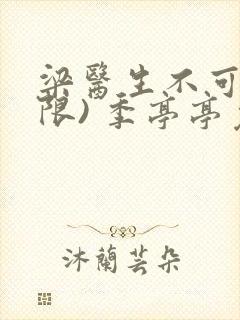 梁醫生不可
限) 季亭亭
沐蘭芸朵